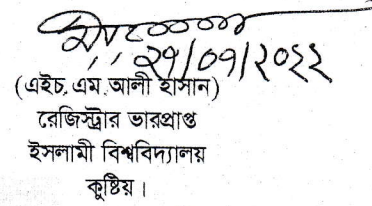 ২৭/০৭/২০২২
(এইচ, এম, আলী হাসান)
রেজিস্ট্রার ভারপ্রাপ্ত
ইসলামী বিশ্ববিদ্যালয়
কুষ্টিয়।